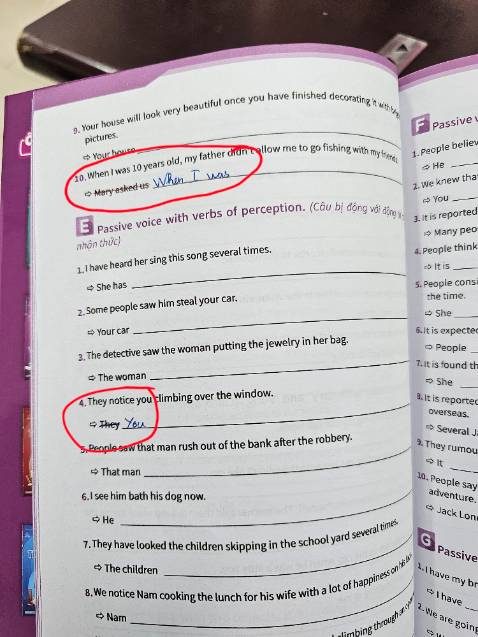 9. Your house will look very beautiful once you have finished decorating it with
pictures.
⇨ Your house
10. When I was 10 years old, my father didn't allow me to go fishing with my friends.
⇨ Mary asked us When I was
E Passive voice with verbs of perception. (Câu bị động với động
nhận thức)
1. I have heard her sing this song several times.
⇨ She has
2. Some people saw him steal your car.
⇨ Your car
3. The detective saw the woman putting the jewelry in her bag.
⇨ The woman
4. They notice you climbing over the window.
⇨ They You
5. People saw that man rush out of the bank after the robbery.
⇨ That man
6. I see him bath his dog now.
⇨ He
7. They have looked the children skipping in the school yard several times.
⇨ The children
8. We notice Nam cooking the lunch for his wife with a lot of happiness on his
⇨ Nam
climbing through an
F Passive
1. People believ
⇨ He
2. We knew tha
⇨ You
3. It is reported
⇨ Many peo
4. People think
⇨ It is
5. People consi
the time.
⇨ She
6. It is expected
⇨ People
7. It is found th
⇨ She
8. It is reported
overseas.
⇨ Several J
9. They rumou
⇨ It
10. People say
adventure.
⇨ Jack Lon
G Passive
1. I have my br
⇨ I have
2. We are going